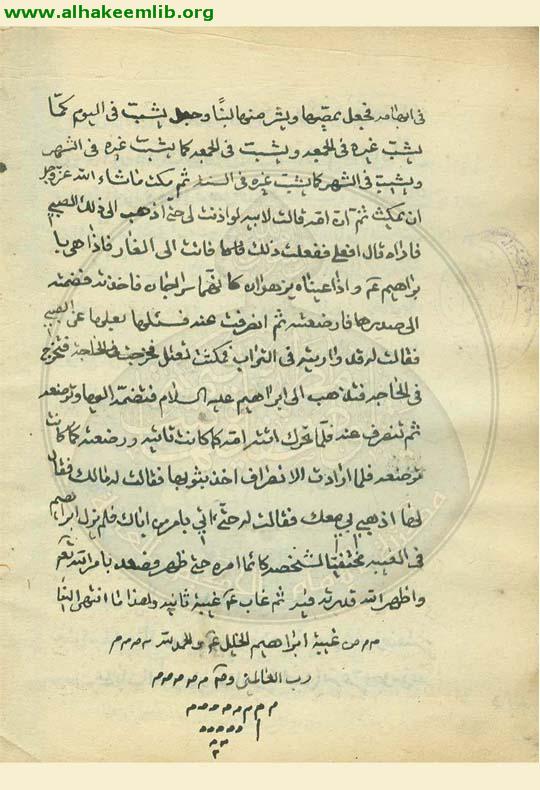 www.alhakeemlib.org
في ابهامه فجعل يمصّها ويشرب منها لبنًا وجعل يشبّ في اليوم كما
يشبّ غيره في الجمعة ويشبّ في الجمعة كما يشبّ غيره في الشهر
ويشبّ في الشهر كما يشبّ غيره في السنة ثم مكث ماشاء الله عزّ وجل
ان يمكث ثم ان امّه قالت لابيه لو اذنت لي حتى اذهب الى ذلك الصبي
فاراه قال افعلي ففعلت ذلك فلما فاتت الى المغار فاذا هي با
براهيم عم واذا عيناه يزهوان كانّهما سراجان فاخذته فضمته
الى صدرها فارضعته ثم انصرفت عنه فسئلها بعلها عن الصبي
فقالت له قد واريته في التراب فمكثت تعتل فتخرج في الحاجة فتخرج
في الحاجة فتذهب الى ابراهيم عليه السلام فتضمّه اليها وترضعه
ثم تنصرف عنه فلمّا تحرك اتته امّه كما كانت تاتيه ورضعته كما كانت
ترضعه فلما ارادت الانصراف اخذ بثوبها فقالت له مالك فقال
لها اذهبي بي معك فقالت له حتّى ياتي بامر من اباك فلم يزل ابراهيم
في الغيبة مختفيًا لشخصه كاتما امره حتى ظهر فصدع بامر الله تعم
واظهر الله قدرته فيه ثم غاب عم غيبة ثانية وهذا ما انتهى الينا
من غيبة ابراهيم الخليل عم والحمد لله
رب العالمين وقم